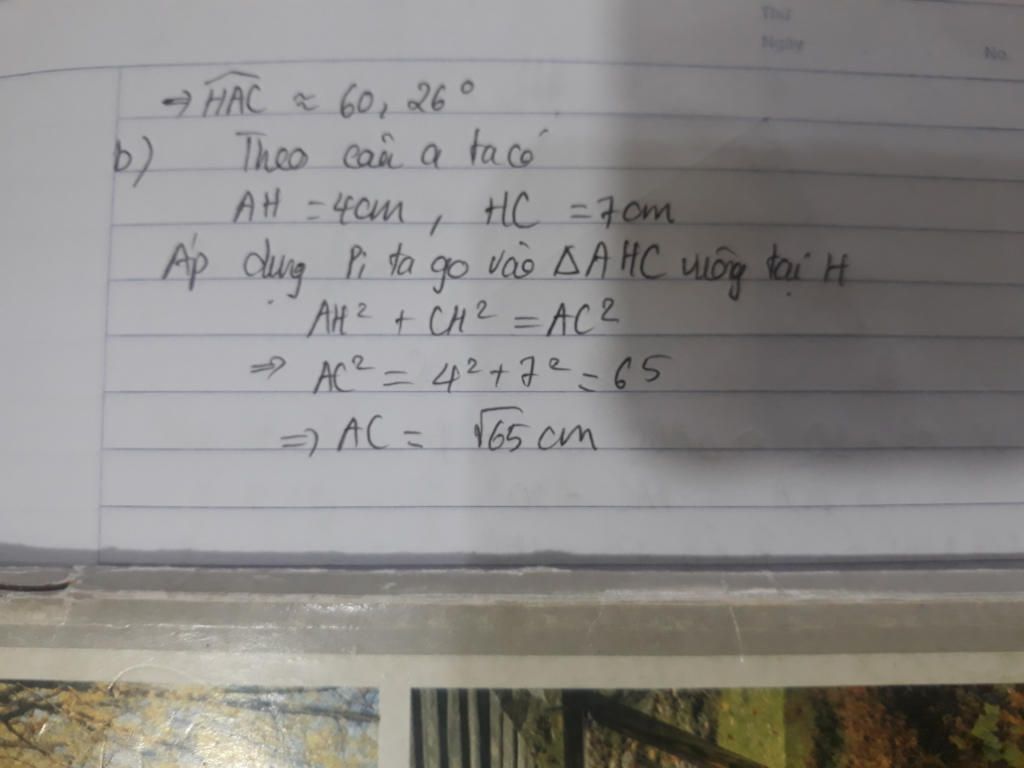 Thứ
Ngày
No.
⇒ HAC ≈ 60,26°
b) Theo câu a ta có
AH = 4cm, HC = 7cm
Áp dụng Pi ta go vào ΔAHC vuông tại H
AH² + CH² = AC²
⇒ AC² = 4² + 7² = 65
⇒ AC = √65 cm